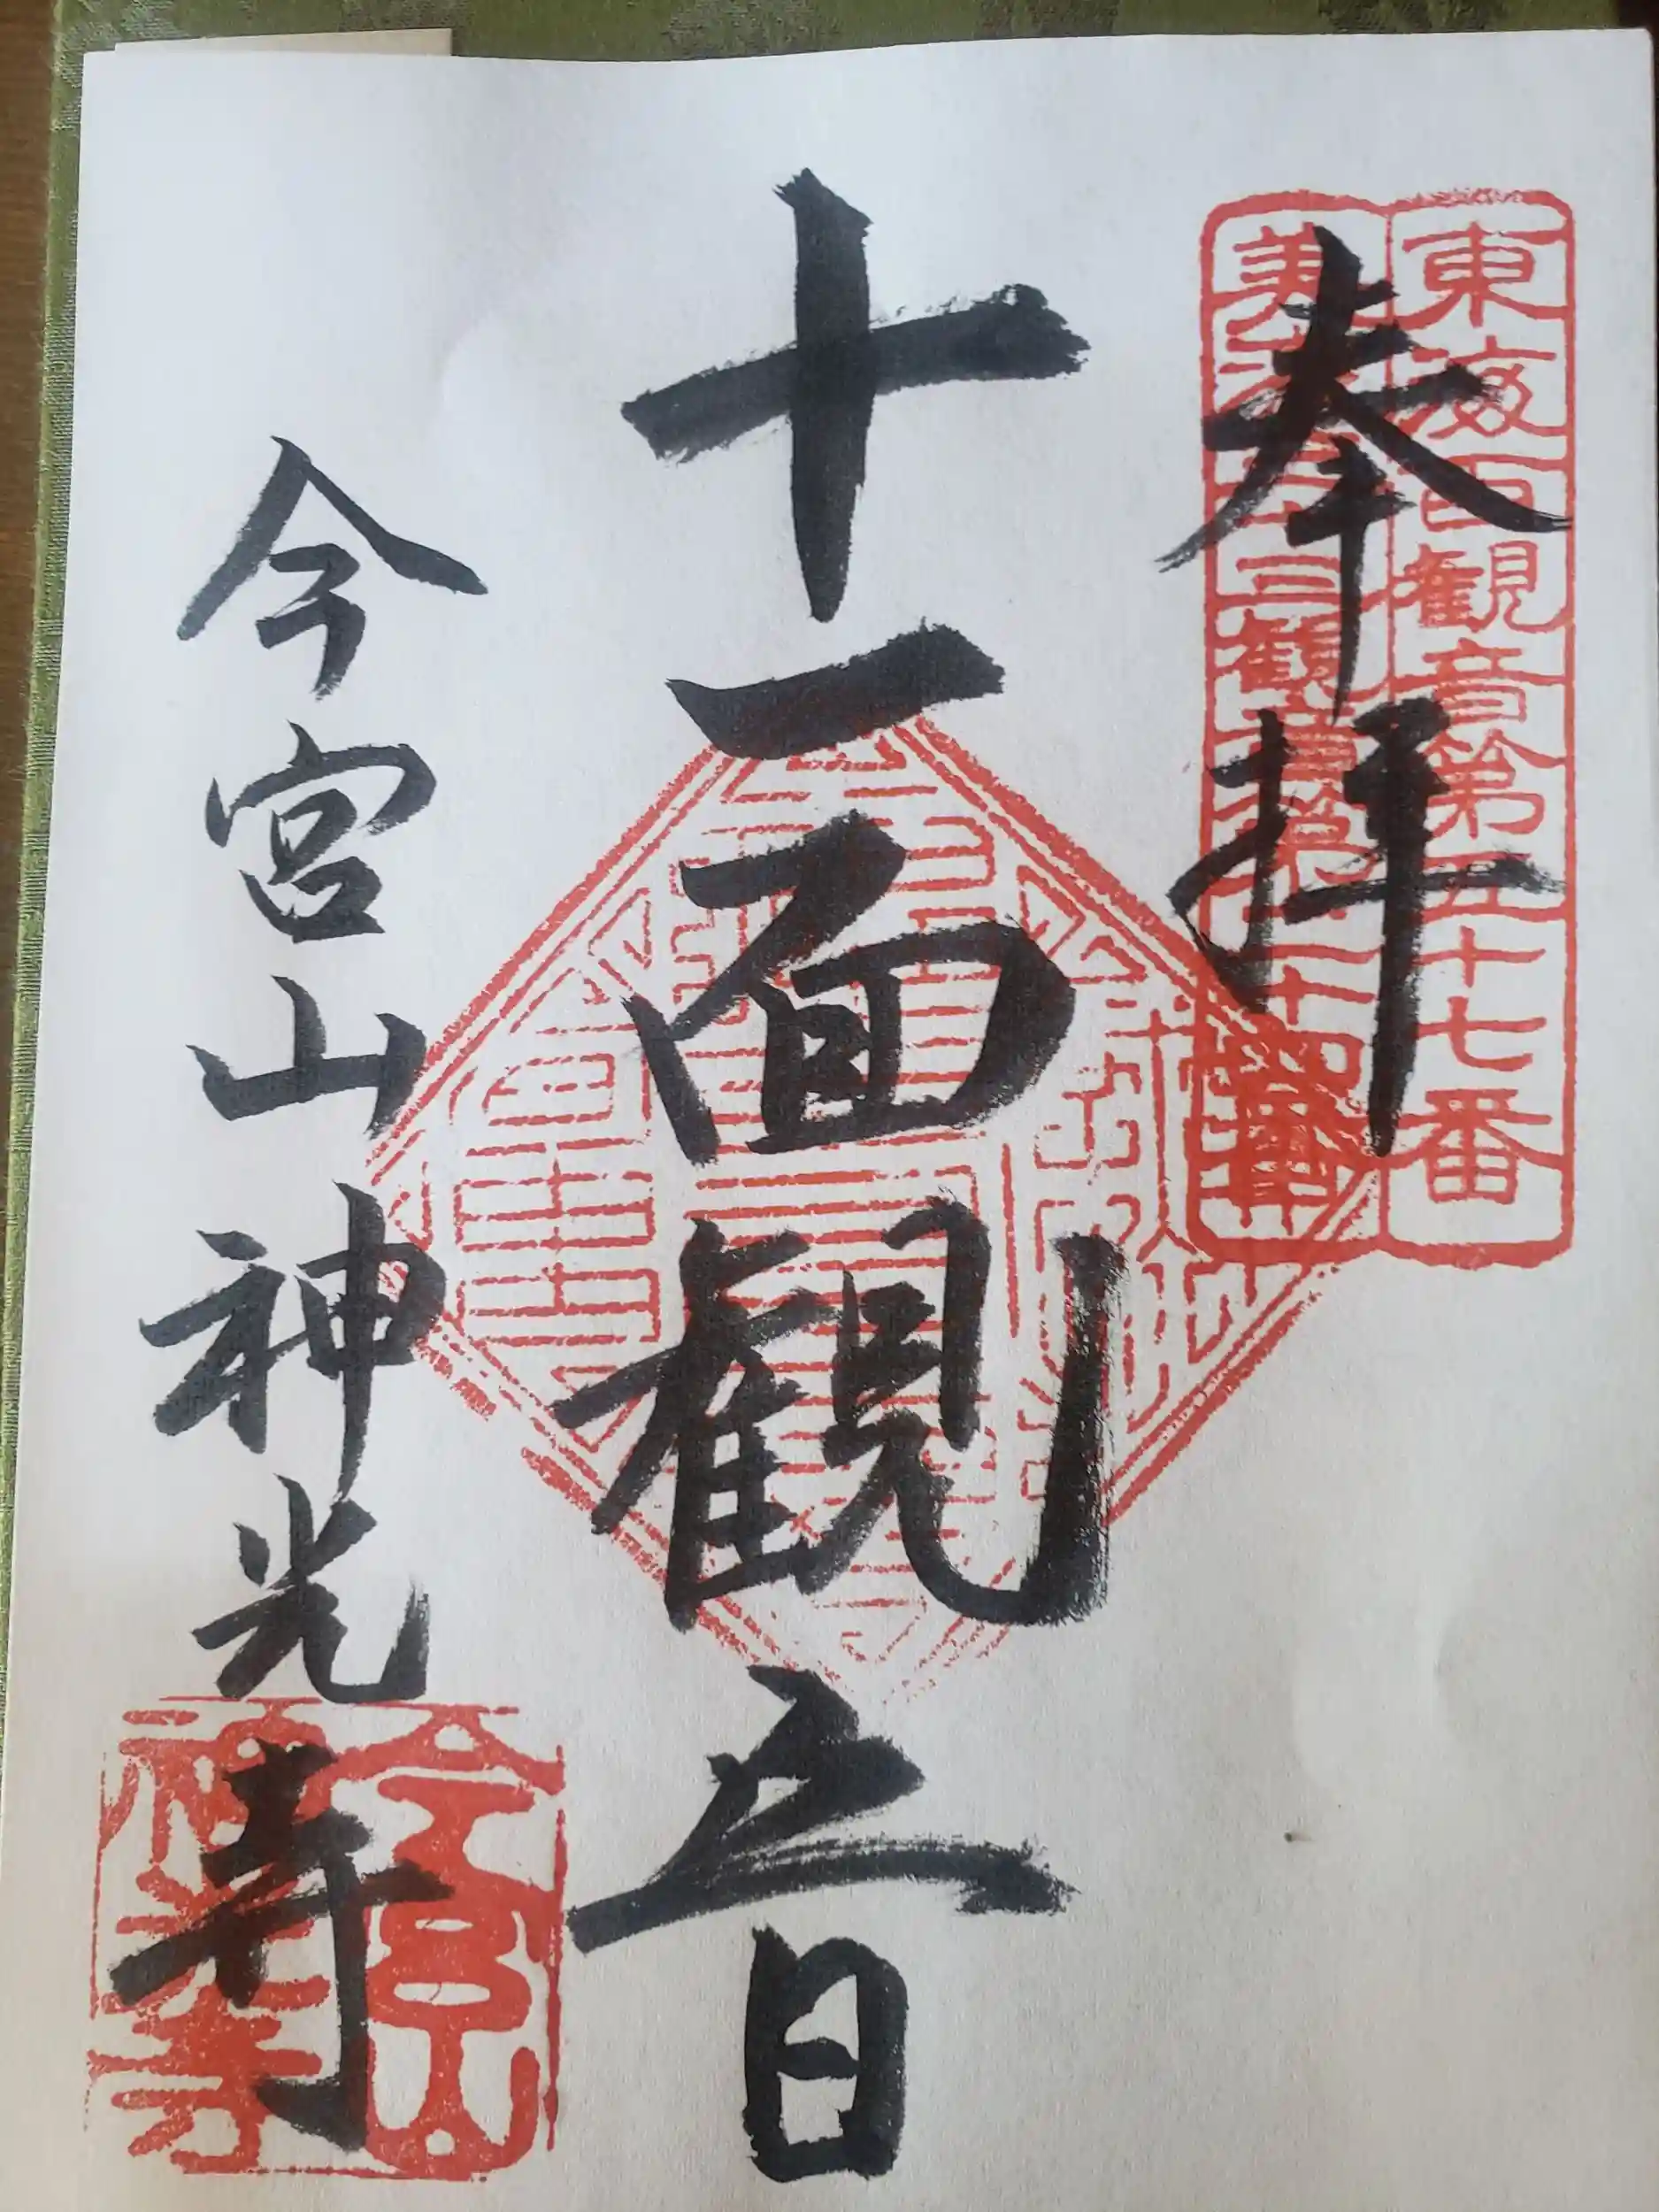 東海百観音第五十七番
美濃三十三観音第二十四番
奉拝
十一面観立日
今宮山神光寺
今宮山
神光寺